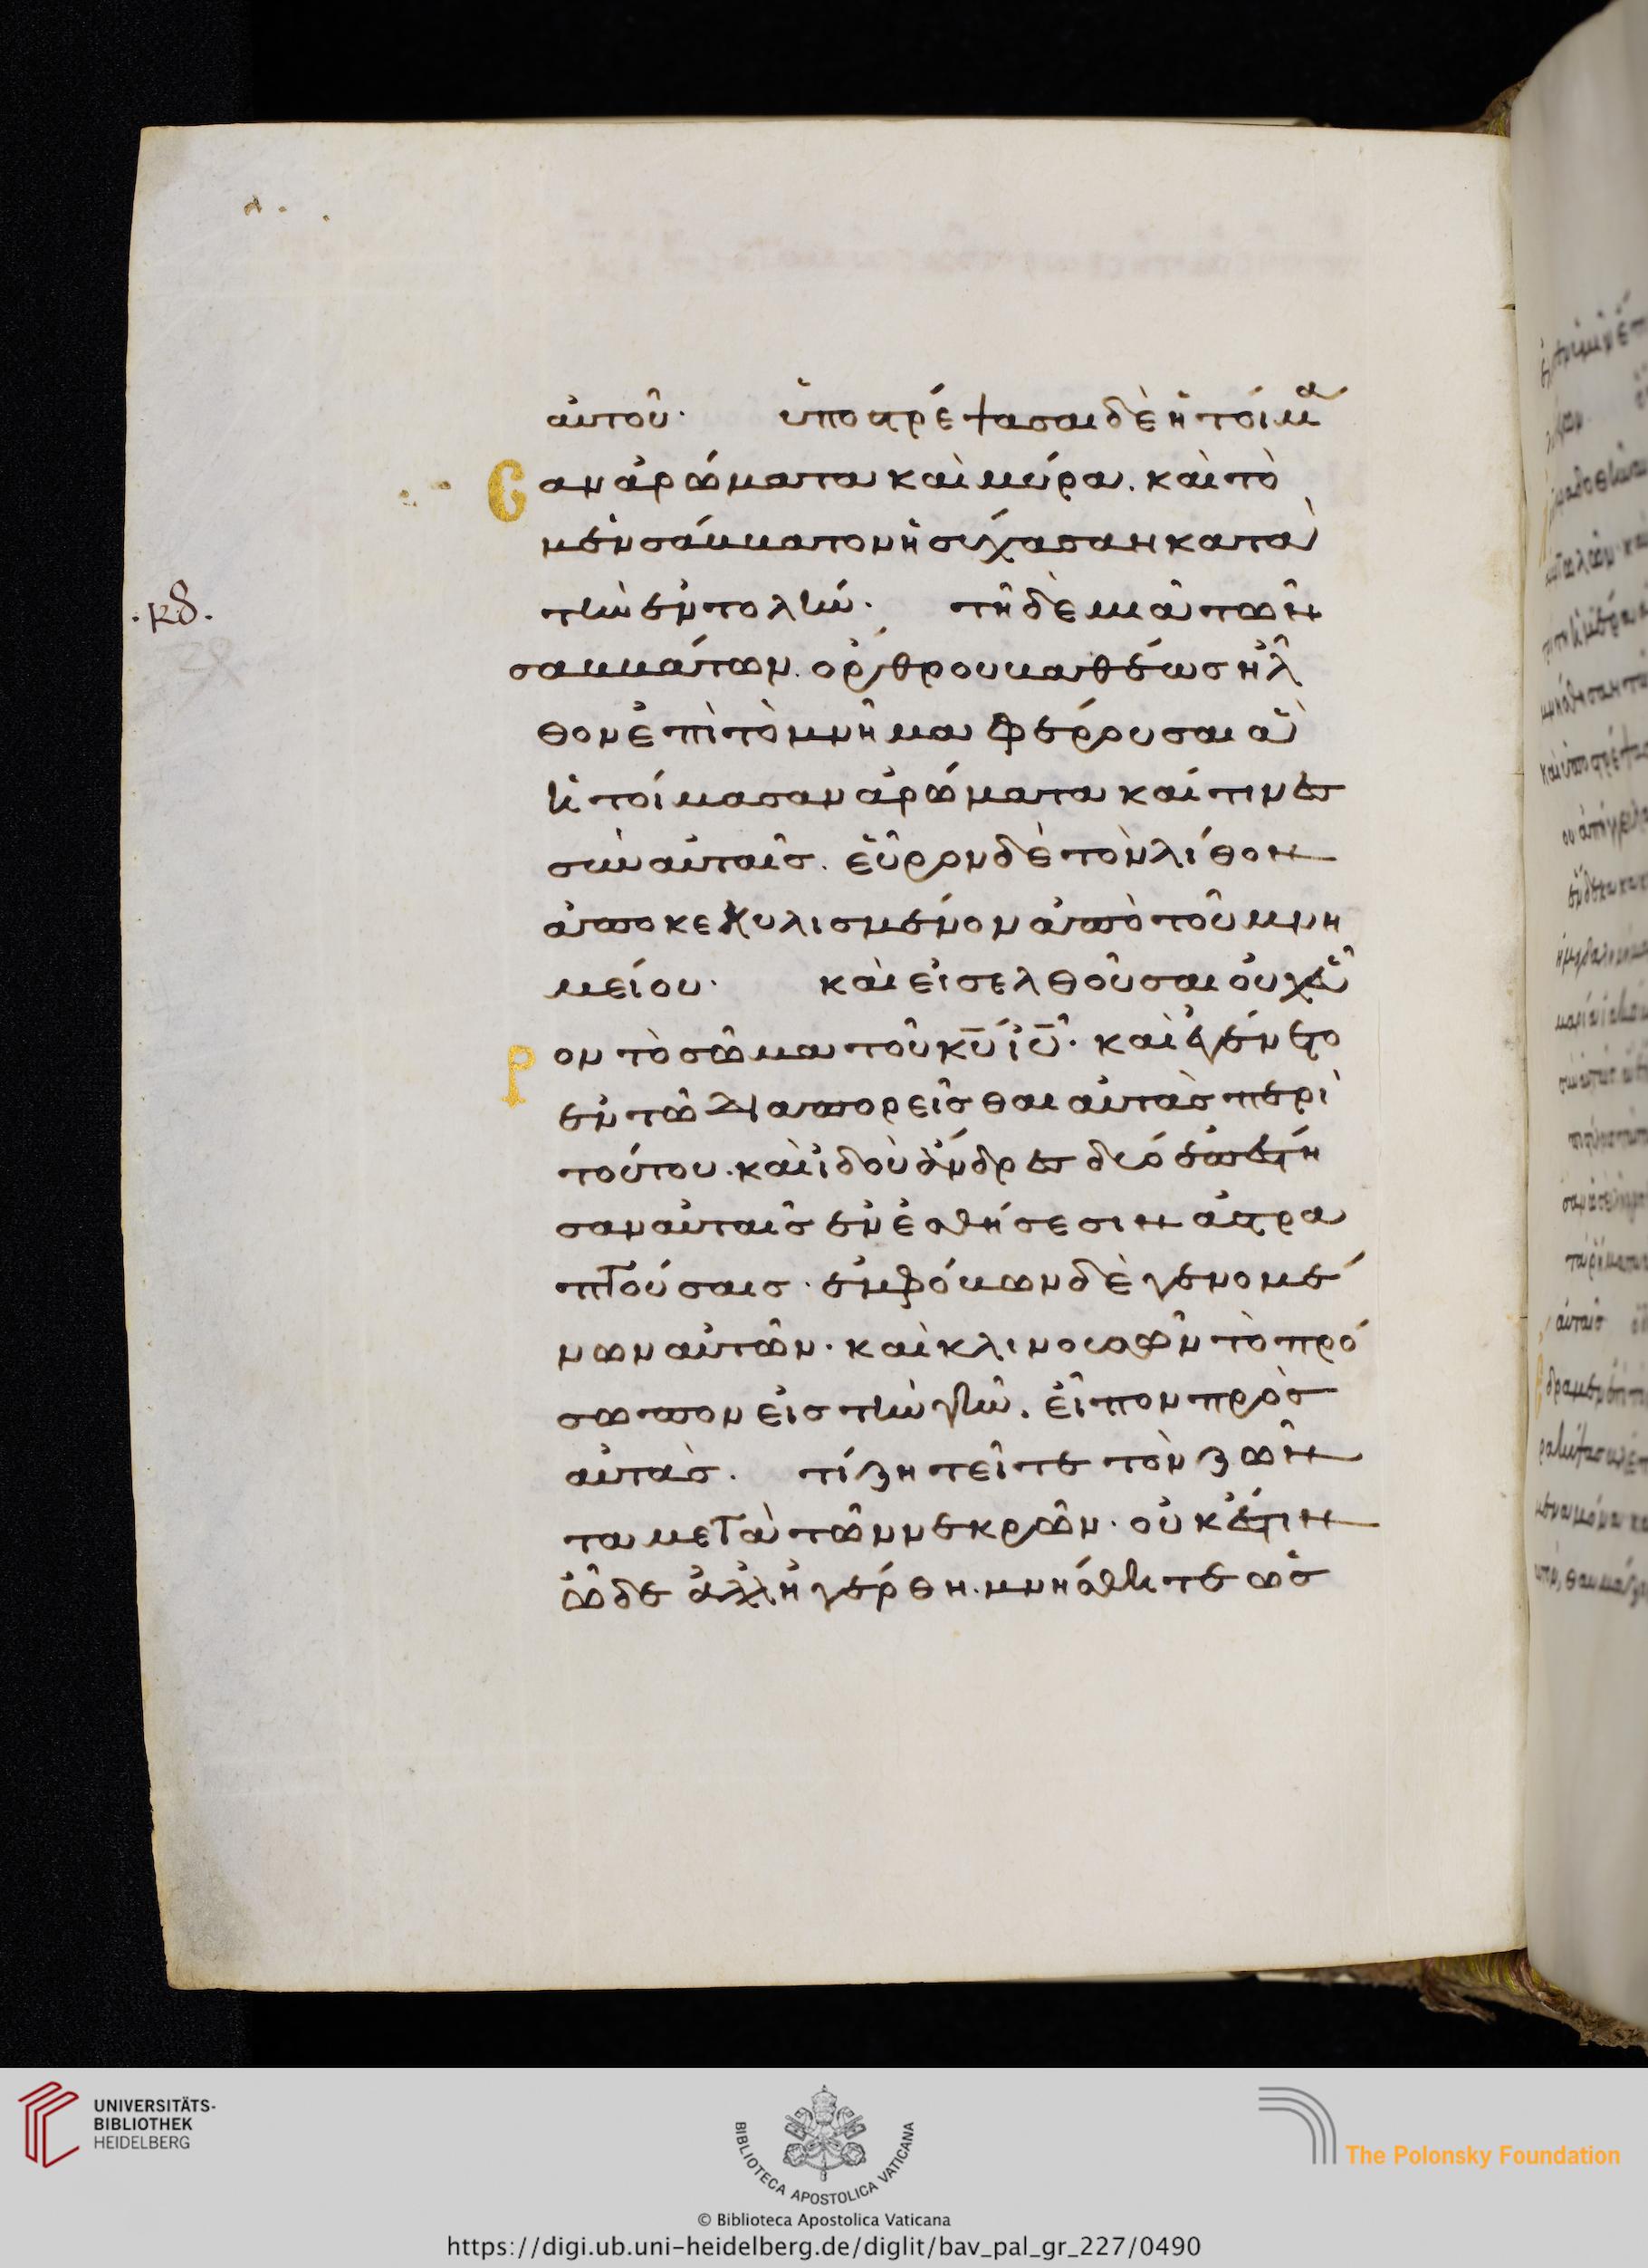 αὐτοῦ. ὑποστρέψασαι δὲ ἡτοίμα
σαν ἀρώματα καὶ μύρα. καὶ τὸ
μὲν σάββατον ἡσύχασαν κατὰ
τὴν ἐντολήν. τῇ δὲ μιᾷ τῶν
.κδ.
σαββάτων. ὄρθρου βαθέως ἦλ
θον ἐπὶ τὸ μνῆμα φέρουσαι ἃ
ἡτοίμασαν ἀρώματα καί τινες
σὺν αὐταῖς. εὗρον δὲ τὸν λίθον
ἀποκεκυλισμένον ἀπὸ τοῦ μνη
μείου. καὶ εἰσελθοῦσαι οὐχ εὗ
ρον τὸ σῶμα τοῦ κ̅υ̅ ι̅υ̅. καὶ ἐγένετο
ἐν τῷ διαπορεῖσθαι αὐτὰς περὶ
τούτου. καὶ ἰδοὺ ἄνδρες δύο ἐπέστη
σαν αὐταῖς ἐν ἐσθήσεσιν ἀστρα
πτούσαις. ἐμφόβων δὲ γενομέ
νων αὐτῶν. καὶ κλινουσῶν τὸ πρό
σωπον εἰς τὴν γῆν. εἶπον πρὸς
αὐτὰς. τί ζητεῖτε τὸν ζῶν
τα μετὰ τῶν νεκρῶν. οὐκ ἔστιν
ὧδε ἀλλ' ἠγέρθη. μνήσθητε ὡς
UNIVERSITÄTS-
BIBLIOTHEK
HEIDELBERG
BIBLIOTECA APOSTOLICA VATICANA
The Polonsky Foundation
© Biblioteca Apostolica Vaticana
https://digi.ub.uni-heidelberg.de/diglit/bav_pal_gr_227/0490